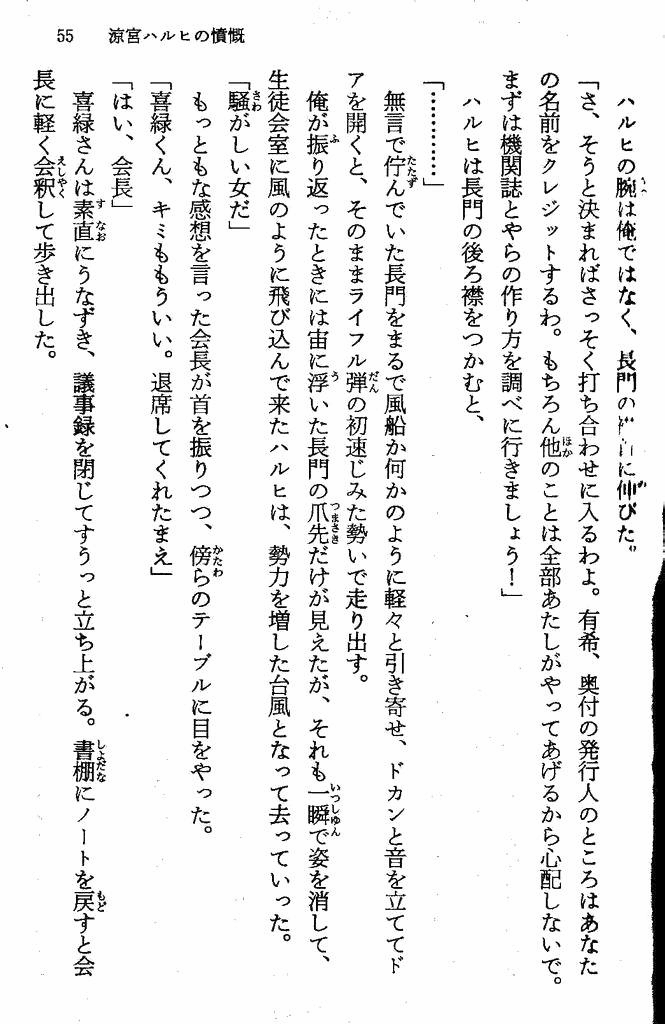 55　涼宮ハルヒの憤慨
ハルヒの腕は俺ではなく、長門の に伸びた。
「さ、そうと決まればさっそく打ち合わせに入るわよ。有希、奥付の発行人のところはあなた
の名前をクレジットするわ。もちろん他のことは全部あたしがやってあげるから心配しないで。
まずは機関誌とやらの作り方を調べに行きましょう！」
ハルヒは長門の後ろ襟をつかむと、
「…………」
無言で佇んでいた長門をまるで風船か何かのように軽々と引き寄せ、ドカンと音を立ててド
アを開くと、そのままライフル弾の初速じみた勢いで走り出す。
俺が振り返ったときには宙に浮いた長門の爪先だけが見えたが、それも一瞬で姿を消して、
生徒会室に風のように飛び込んで来たハルヒは、勢力を増した台風となって去っていった。
「騒がしい女だ」
もっともな感想を言った会長が首を振りつつ、傍らのテーブルに目をやった。
「喜緑くん、キミももういい。退席してくれたまえ」
「はい、会長」
喜緑さんは素直にうなずき、議事録を閉じてすうっと立ち上がる。書棚にノートを戻すと会
長に軽く会釈して歩き出した。